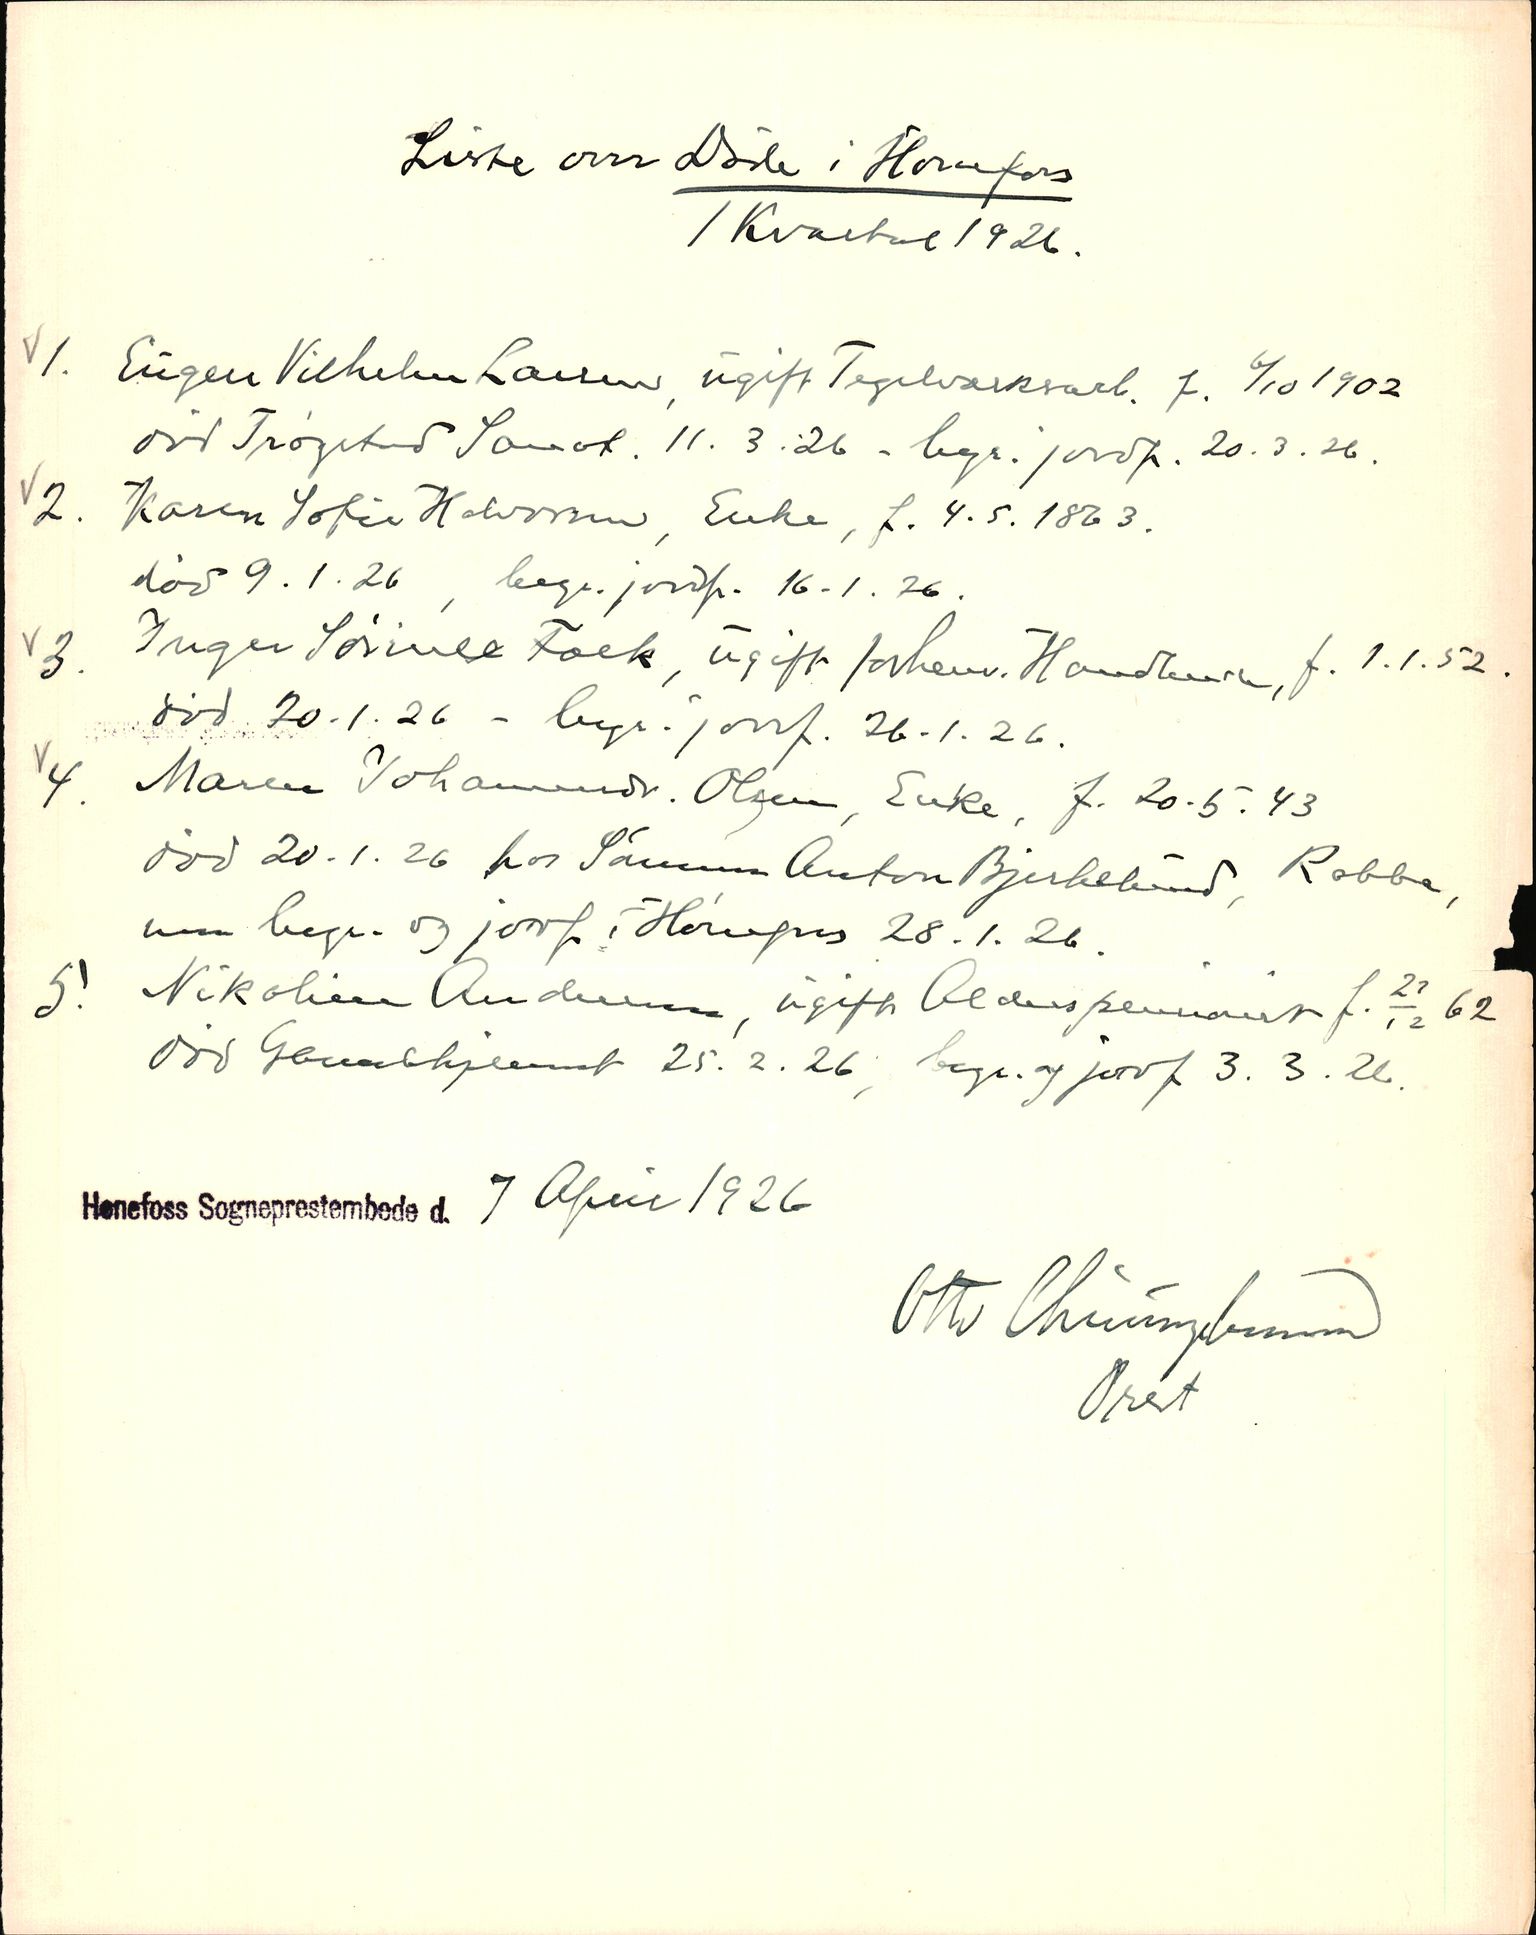 Liste over Døde i Hønefoss
1 Kvartal 1926.
1. Eugen Vilhelm Larsen, ugift Tegelværksarb. f. 6/10 1902
død Trøgstad Sanat. 11.3.26 - begr. jordf. 20.3.26.
2. Karen Sofie Halvorsen, Enke, f. 4.5.1863.
død 9.1.26, begr. jordf. 16.1.26.
3. Inger Sørine Falk, ugift forhenv. Handlerske, f. 1.1.52.
død 20.1.26 - begr. jordf. 26.1.26.
4. Maren Johannesdr. Olsen, Enke, f. 20.5.43
død 20.1.26 hos Sønnen Anton Bjerkelund, Robba,
men begr. og jordf. i Hønefoss 28.1.26.
5. Nikoline Andersen, ugift Alderspensionist f. 27/12 62
død Gamlehjemmet 25.2.26, begr. og jordf 3.3.26.
Hønefoss Sogneprestembede d. 7 April 1926
Otto
Prest